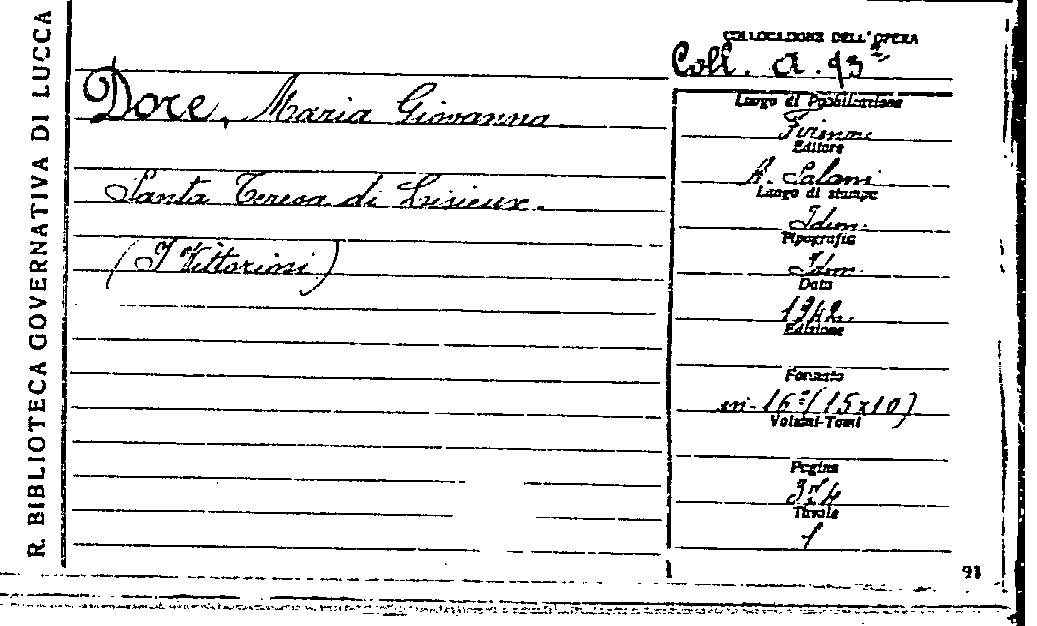 R. BIBLIOTECA GOVERNATIVA DI LUCCA
COLLOCAZIONE DELL'OPERA
Coll. A. 93
Dore, Maria Giovanna
Santa Teresa di Lisieux.
(I Vittoriosi)
Luogo di Pubblicazione
Firenze
Editore
A. Salani
Luogo di stampa
Idem.
Tipografia
Idem.
Data
1942.
Edizione
Formato
in-16º (15x10)
Volumi-Tomi
Pagine
Tavole
1
91